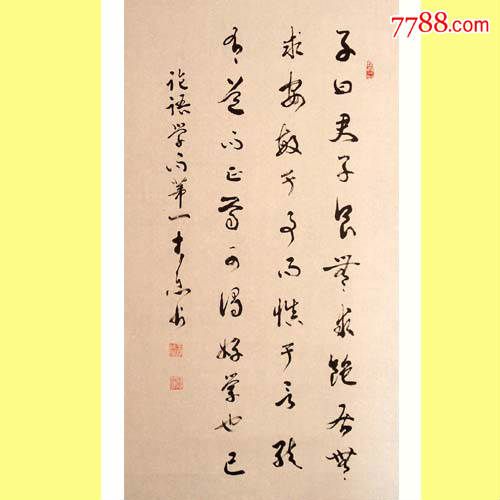 7788.com
子曰君子食無求飽居無
求安敏于事而慎于言就
有道而正焉可謂好学也已
論語学而第一